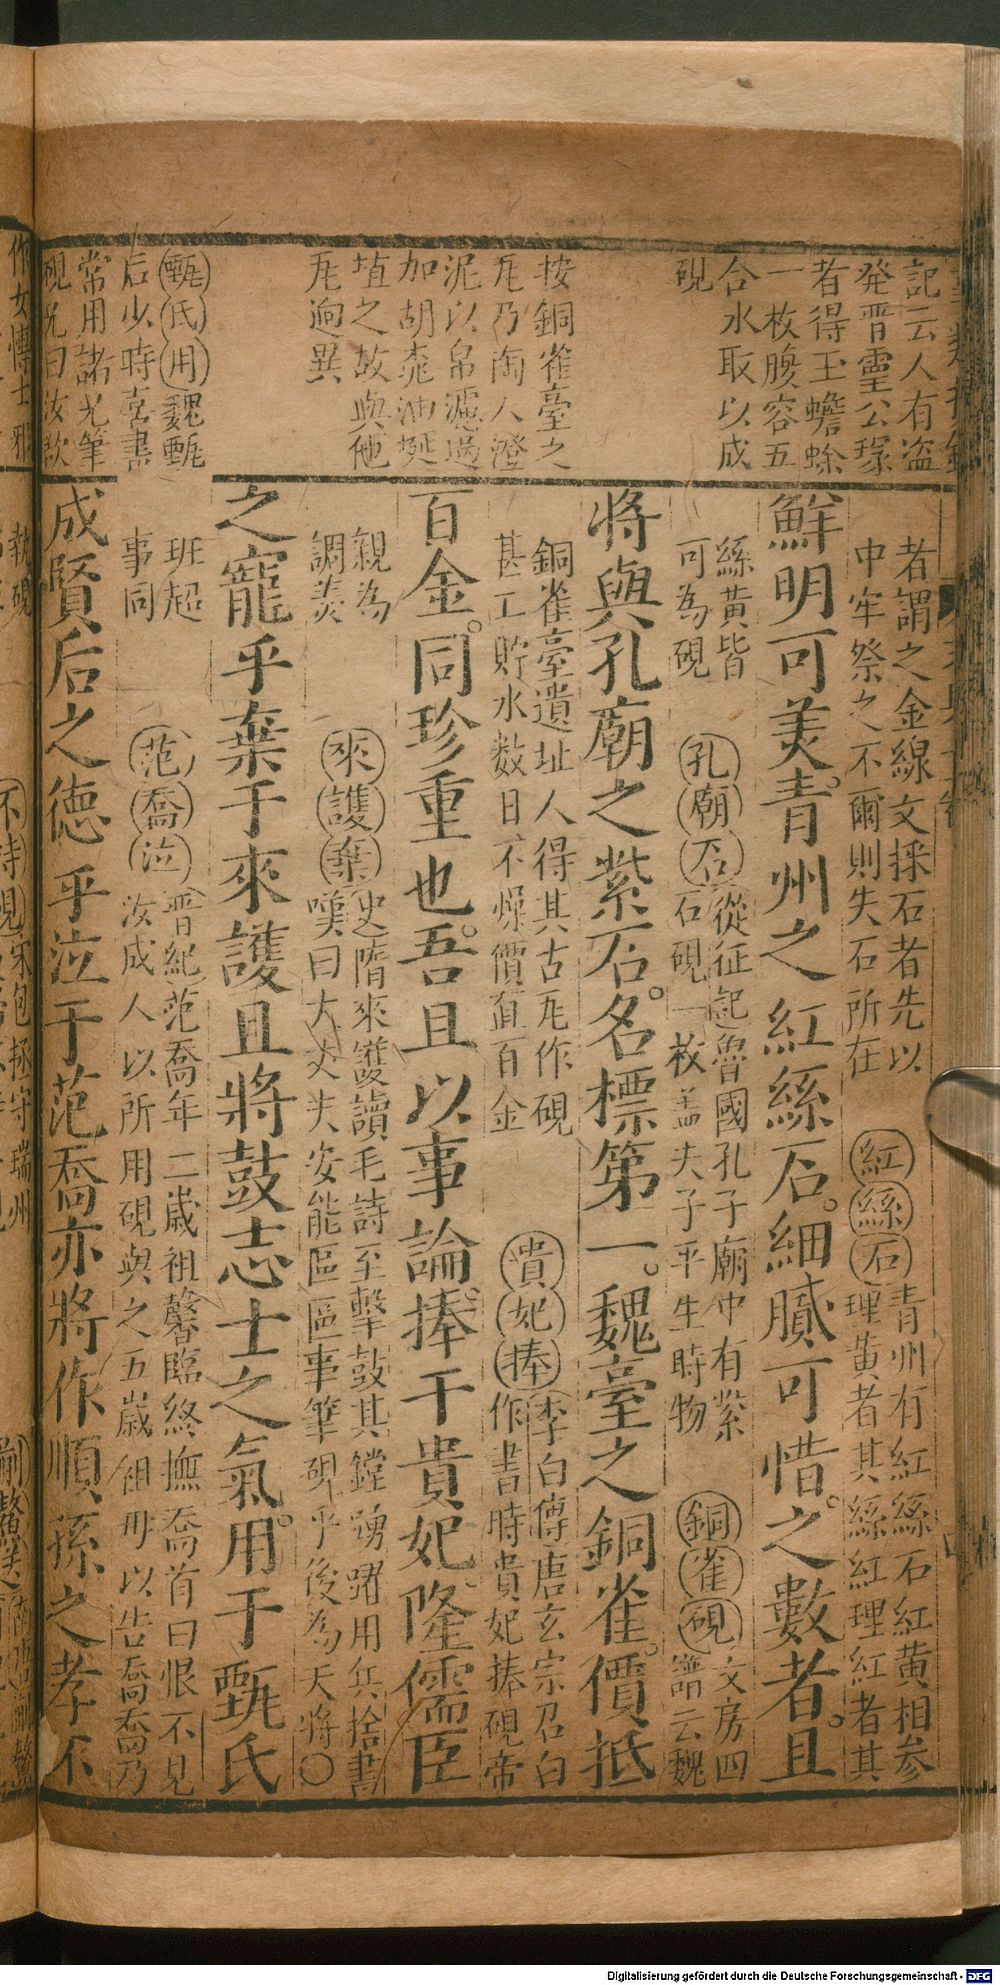 記云人有盗
発晋霊公塚
者得玉蟾蜍
一枚腹容五
合水取以成
硯
按銅雀臺之
瓦乃陶人澄
泥以帛濾過
加胡桃油埏
埴之故與他
瓦逈異
甄氏用魏甄
后少時喜書
常用諸兄筆
硯兄曰汝欲
者謂之金線文採石者先以
中牢祭之不爾則失石所在
紅絲石青州有紅絲石紅黄相参
理黄者其絲紅理紅者其
鮮明可羙青州之紅絲石。細膩可惜。之數者。且
絲黄皆
可為硯
孔廟石從征記魯國孔子廟中有紫
石硯一枚盖夫子平生時物
銅雀硯文房四
譜云魏
將與孔廟之紫石。名標第一。魏臺之銅雀。價抵
銅雀臺遺址人得其古瓦作硯
甚工貯水数日不燥價直百金
貴妃捧李白傳唐玄宗召白
作書時貴妃捧硯帝
百金。同珍重也。吾且以事論。捧于貴妃。隆儒臣
親為
調羙
來護棄史隋來護讀毛詩至擊鼓其鏜踴躍用兵捨書
嘆曰大丈夫安能區區事筆硯乎後為天將○
之寵乎棄于來護且將鼓志士之氣。用于甄氏
班超
事同
范喬泣晋紀范喬年二歳祖馨臨終撫喬首曰恨不見
汝成人以所用硯與之五歳祖母以告喬喬乃
成賢后之德乎泣于范喬亦將作順孫之孝不